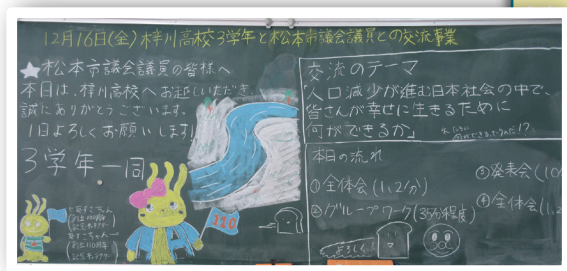 12月16日(金)梓川高校3学年と松本市議会議員との交流事業
★松本市議会議員の皆様へ
本日は、梓川高校へお越しいただき、
誠にありがとうございます。
1日よろしくお願いします!
3学年一同
110
交流のテーマ
「人口減少が進む日本社会の中で、
皆さんが幸せに生きるために
何ができるか」
本日の流れ
①全体会(1,2分)
②グループワーク(35分程度)
③発表会(10
④全体会(1,2
よろしく!